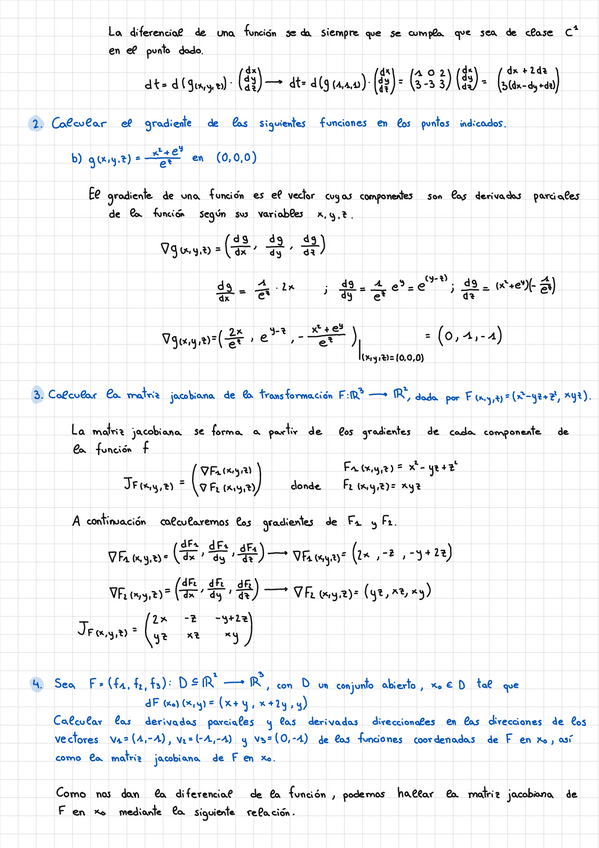 La diferencial de una función se da siempre que se cumpla que sea de clase C¹
en el punto dado.
dt = d(g(x,y,z))·(dx dy dz) → dt = d(g(1,1,1))·(dx dy dz) = (1 0 2 / 3 -3 3)(dx dy dz) = (dx + 2dz / 3(dx-dy+dz))
2. Calcular el gradiente de las siguientes funciones en los puntos indicados.
b) g(x,y,z) = (x²+e^y)/e^z en (0,0,0)
El gradiente de una función es el vector cuyas componentes son las derivadas parciales
de la función según sus variables x,y,z.
∇g(x,y,z) = (dg/dx, dg/dy, dg/dz)
dg/dx = 1/e^z · 2x ; dg/dy = 1/e^z e^y = e^(y-z) ; dg/dz = (x²+e^y)(-1/e^z)
∇g(x,y,z) = (2x/e^z, e^(y-z), -(x²+e^y)/e^z)|(x,y,z)=(0,0,0) = (0,1,-1)
3. Calcular la matriz jacobiana de la transformación F:ℝ³ → ℝ², dada por F(x,y,z) = (x²-yz+z², xyz).
La matriz jacobiana se forma a partir de los gradientes de cada componente de
la función f
JF(x,y,z) = (∇F1(x,y,z) / ∇F2(x,y,z)) donde F1(x,y,z) = x² - yz + z²
F2(x,y,z) = xyz
A continuación calcularemos los gradientes de F1 y F2.
∇F1(x,y,z) = (dF1/dx, dF1/dy, dF1/dz) → ∇F1(x,y,z) = (2x, -z, -y+2z)
∇F2(x,y,z) = (dF2/dx, dF2/dy, dF2/dz) → ∇F2(x,y,z) = (yz, xz, xy)
JF(x,y,z) = (2x -z -y+2z / yz xz xy)
4. Sea F = (f1, f2, f3): D ⊆ ℝ² → ℝ³, con D un conjunto abierto, x0 ∈ D tal que
dF(x0)(x,y) = (x+y, x+2y, y)
Calcular las derivadas parciales y las derivadas direccionales en las direcciones de los
vectores v1=(1,-1), v2=(-1,-1) y v3=(0,-1) de las funciones coordenadas de F en x0, así
como la matriz jacobiana de F en x0.
Como nos dan la diferencial de la función, podemos hallar la matriz jacobiana de
F en x0 mediante la siguiente relación.